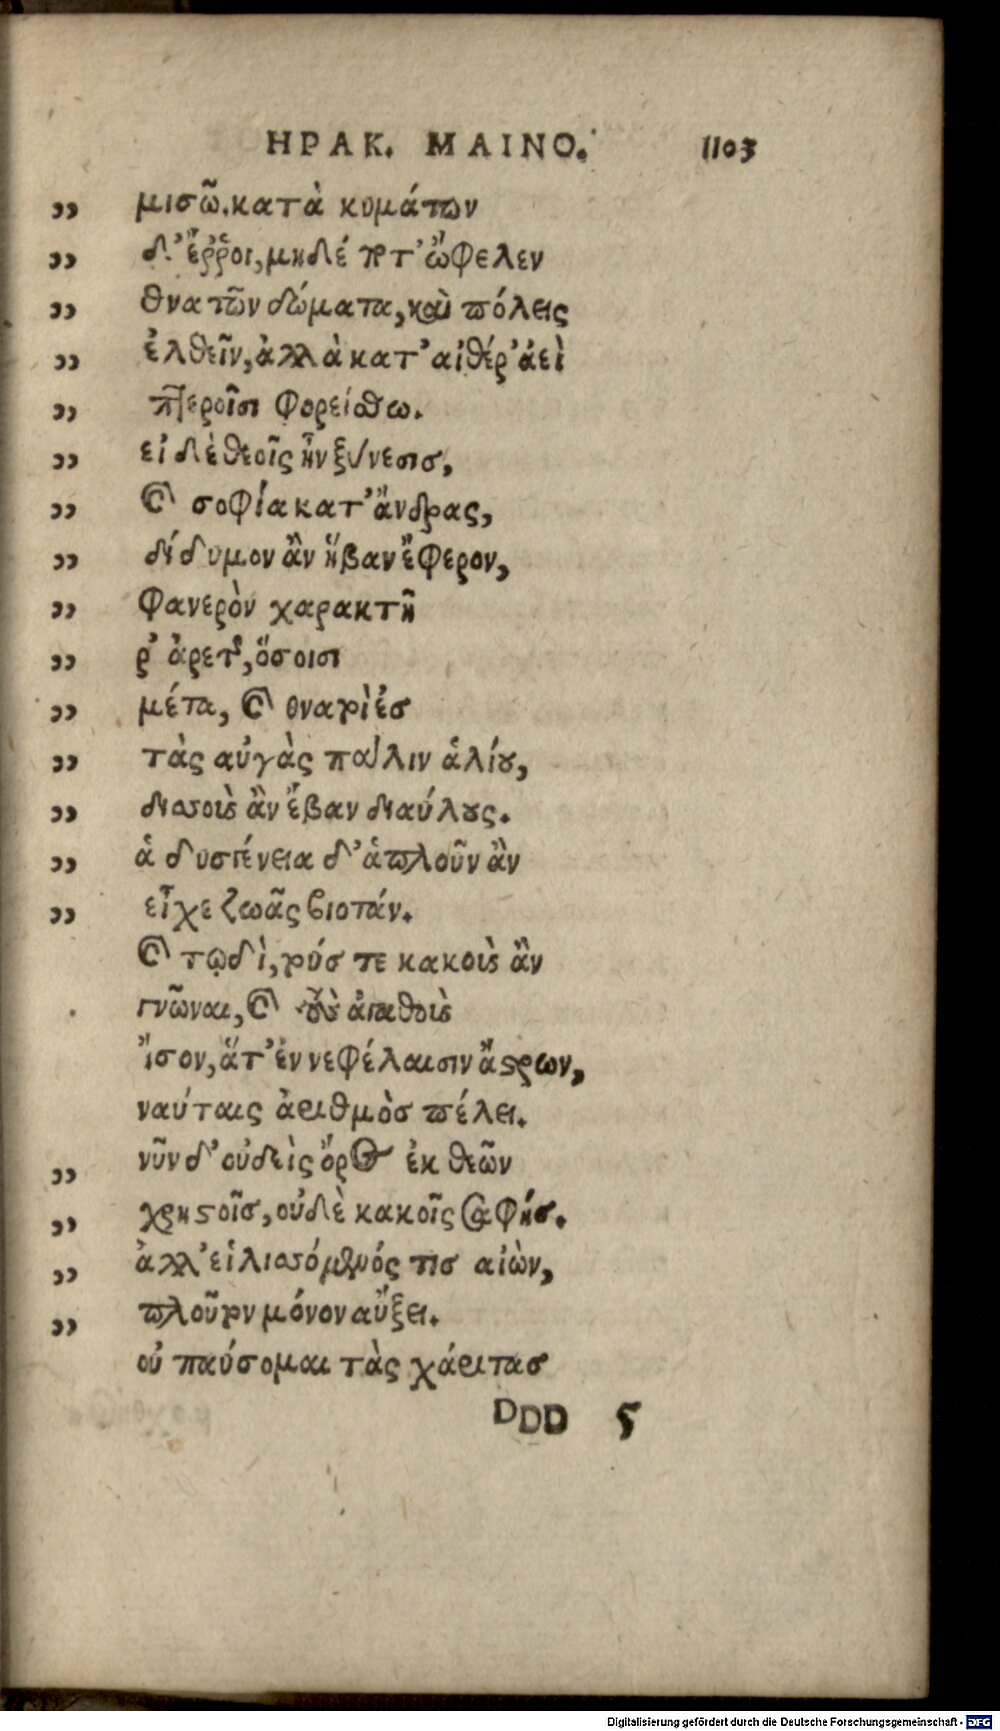 ΗΡΑΚ. ΜΑΙΝΟ. 1103
„ μισῶ. κατὰ κυμάτων
„ δ' ἔῤῥοι, μηδέ ποτ' ὤφελεν
„ θνατῶν δώματα, καὶ πόλεις
„ ἐλθεῖν, ἀλλὰ κατ' αἰθέρ' ἀεὶ
„ πτεροῖσι φορείσθω.
„ εἰ δὲ θεοῖς ἦν ξύνεσις,
„ καὶ σοφία κατ' ἄνδρας,
„ δίδυμον ἂν ἥβαν ἔφερον,
„ φανερὸν χαρακτῆ
„ ρ' ἀρετᾶς, ὅσοισι
„ μέτα, καὶ θνατοὶ ἐσ
„ τὰς αὐγὰς πάλιν ἁλίου,
„ δισσοὺς ἂν ἔβαν διαύλους.
„ ἁ δυσγένεια δ' ἁπλοῦν ἂν
„ εἶχε ζωᾶς βιοτάν.
καὶ τῷδὶ, τούς τε κακοὺς ἂν
γνῶναι, καὶ τοὺς ἀγαθοὺς
ἴσον, ἅτ' ἐν νεφέλαισιν ἄστρων,
ναύταις ἀριθμὸς πέλει.
„ νῦν δ' οὐδεὶς ὅρος ἐκ θεῶν
„ χρηστοῖς, οὐδὲ κακοῖς σαφής.
„ ἀλλ' εἱλισσόμενός τις αἰὼν,
„ πλοῦτον μόνον αὔξει.
οὐ παύσομαι τὰς χάριτας
DDD 5
Digitalisierung gefördert durch die Deutsche Forschungsgemeinschaft - DFG